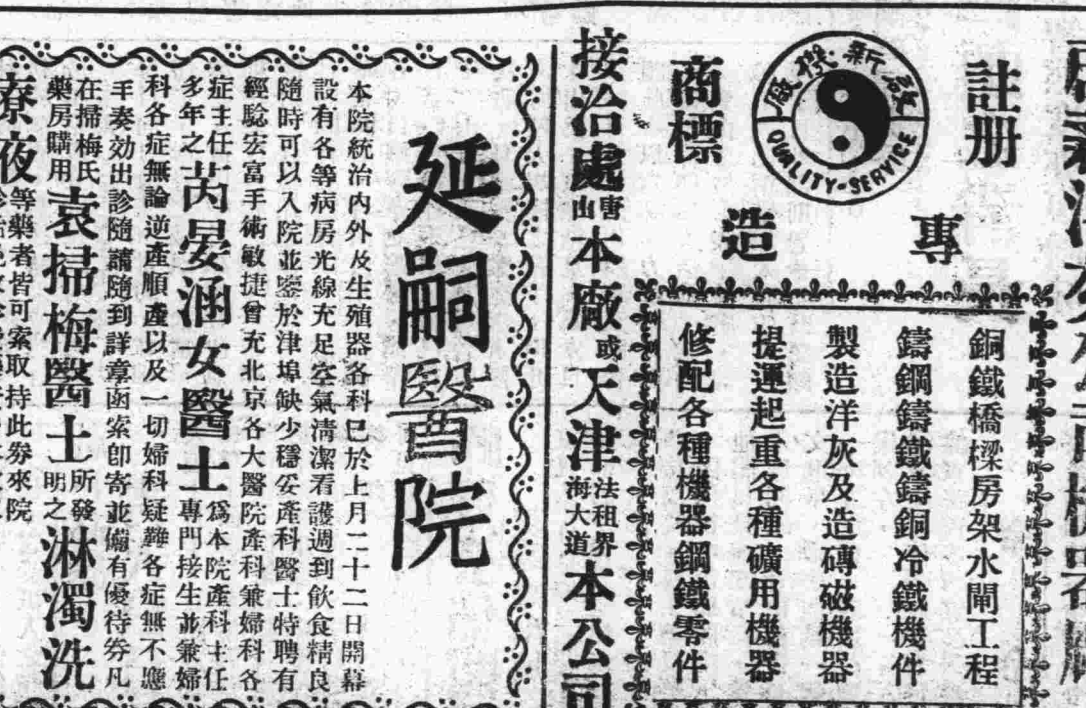 註册
商標
啟新機廠
QUALITY·SERVICE
專造
銅鐵橋樑房架水閘工程
鑄鋼鑄鐵鑄銅冷鐵機件
製造洋灰及造磚磁機器
提運起重各種礦用機器
修配各種機器鋼鐵零件
接洽處唐山本廠或天津法租界海大道本公司
延嗣醫院
本院統治內外及生殖器各科已於上月二十二日開幕
設有各等病房光線充足空氣清潔看護週到飲食精良
隨時可以入院並鑒於津埠缺少穩妥產科醫士特聘有
經驗宏富手術敏捷曾充北京各大醫院產科兼婦科各
症主任多年之芮晏涵女醫士為本院產科主任專門接生並兼婦
科各症無論逆產順產以及一切婦科疑難各症無不應
手奏効出診隨請隨到詳章函索卽寄並備有優待券凡
在掃梅氏藥房購用袁掃梅醫士所發明之淋濁洗
療液等藥者皆可索取持此券來院